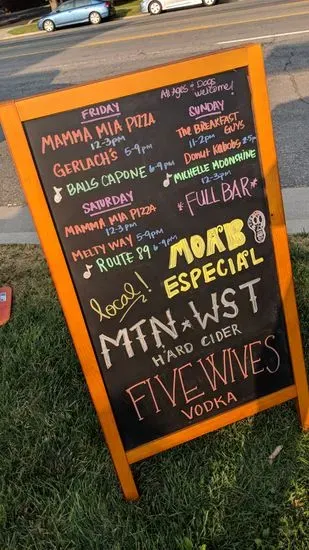 All Ages & Dogs
welcome!
FRIDAY
MAMMA MIA PIZZA
12-3pm
GERLACH'S 5-9pm
♪ BALLS CAPONE 6-9pm
SATURDAY
MAMMA MIA PIZZA
12-3pm
MELTY WAY 5-9pm
♪ ROUTE 89 6-9pm
SUNDAY
11-2pm THE BREAKFAST
GUYS
DONUT KABOBS 2-5pm
♪ MICHELLE MOONSHINE
12-3pm
*FULL BAR*
MOAB
ESPECIAL
local!
MTN★WST
HARD CIDER
FIVE WIVES
VODKA